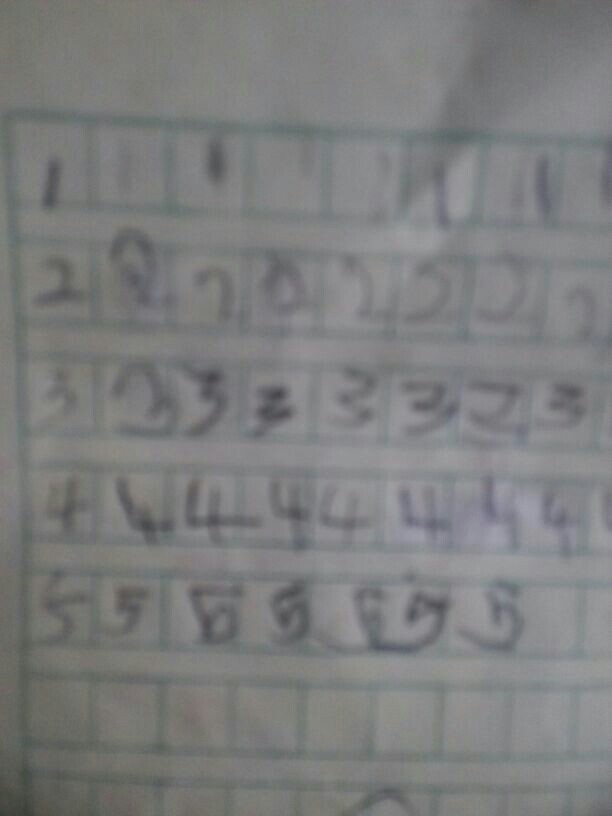 1 1 1 1 1 1 1 1
2 2 2 2 2 2 2 2
3 3 3 3 3 3 3 3
4 4 4 4 4 4 4 4
5 5 5 5 5 5 5